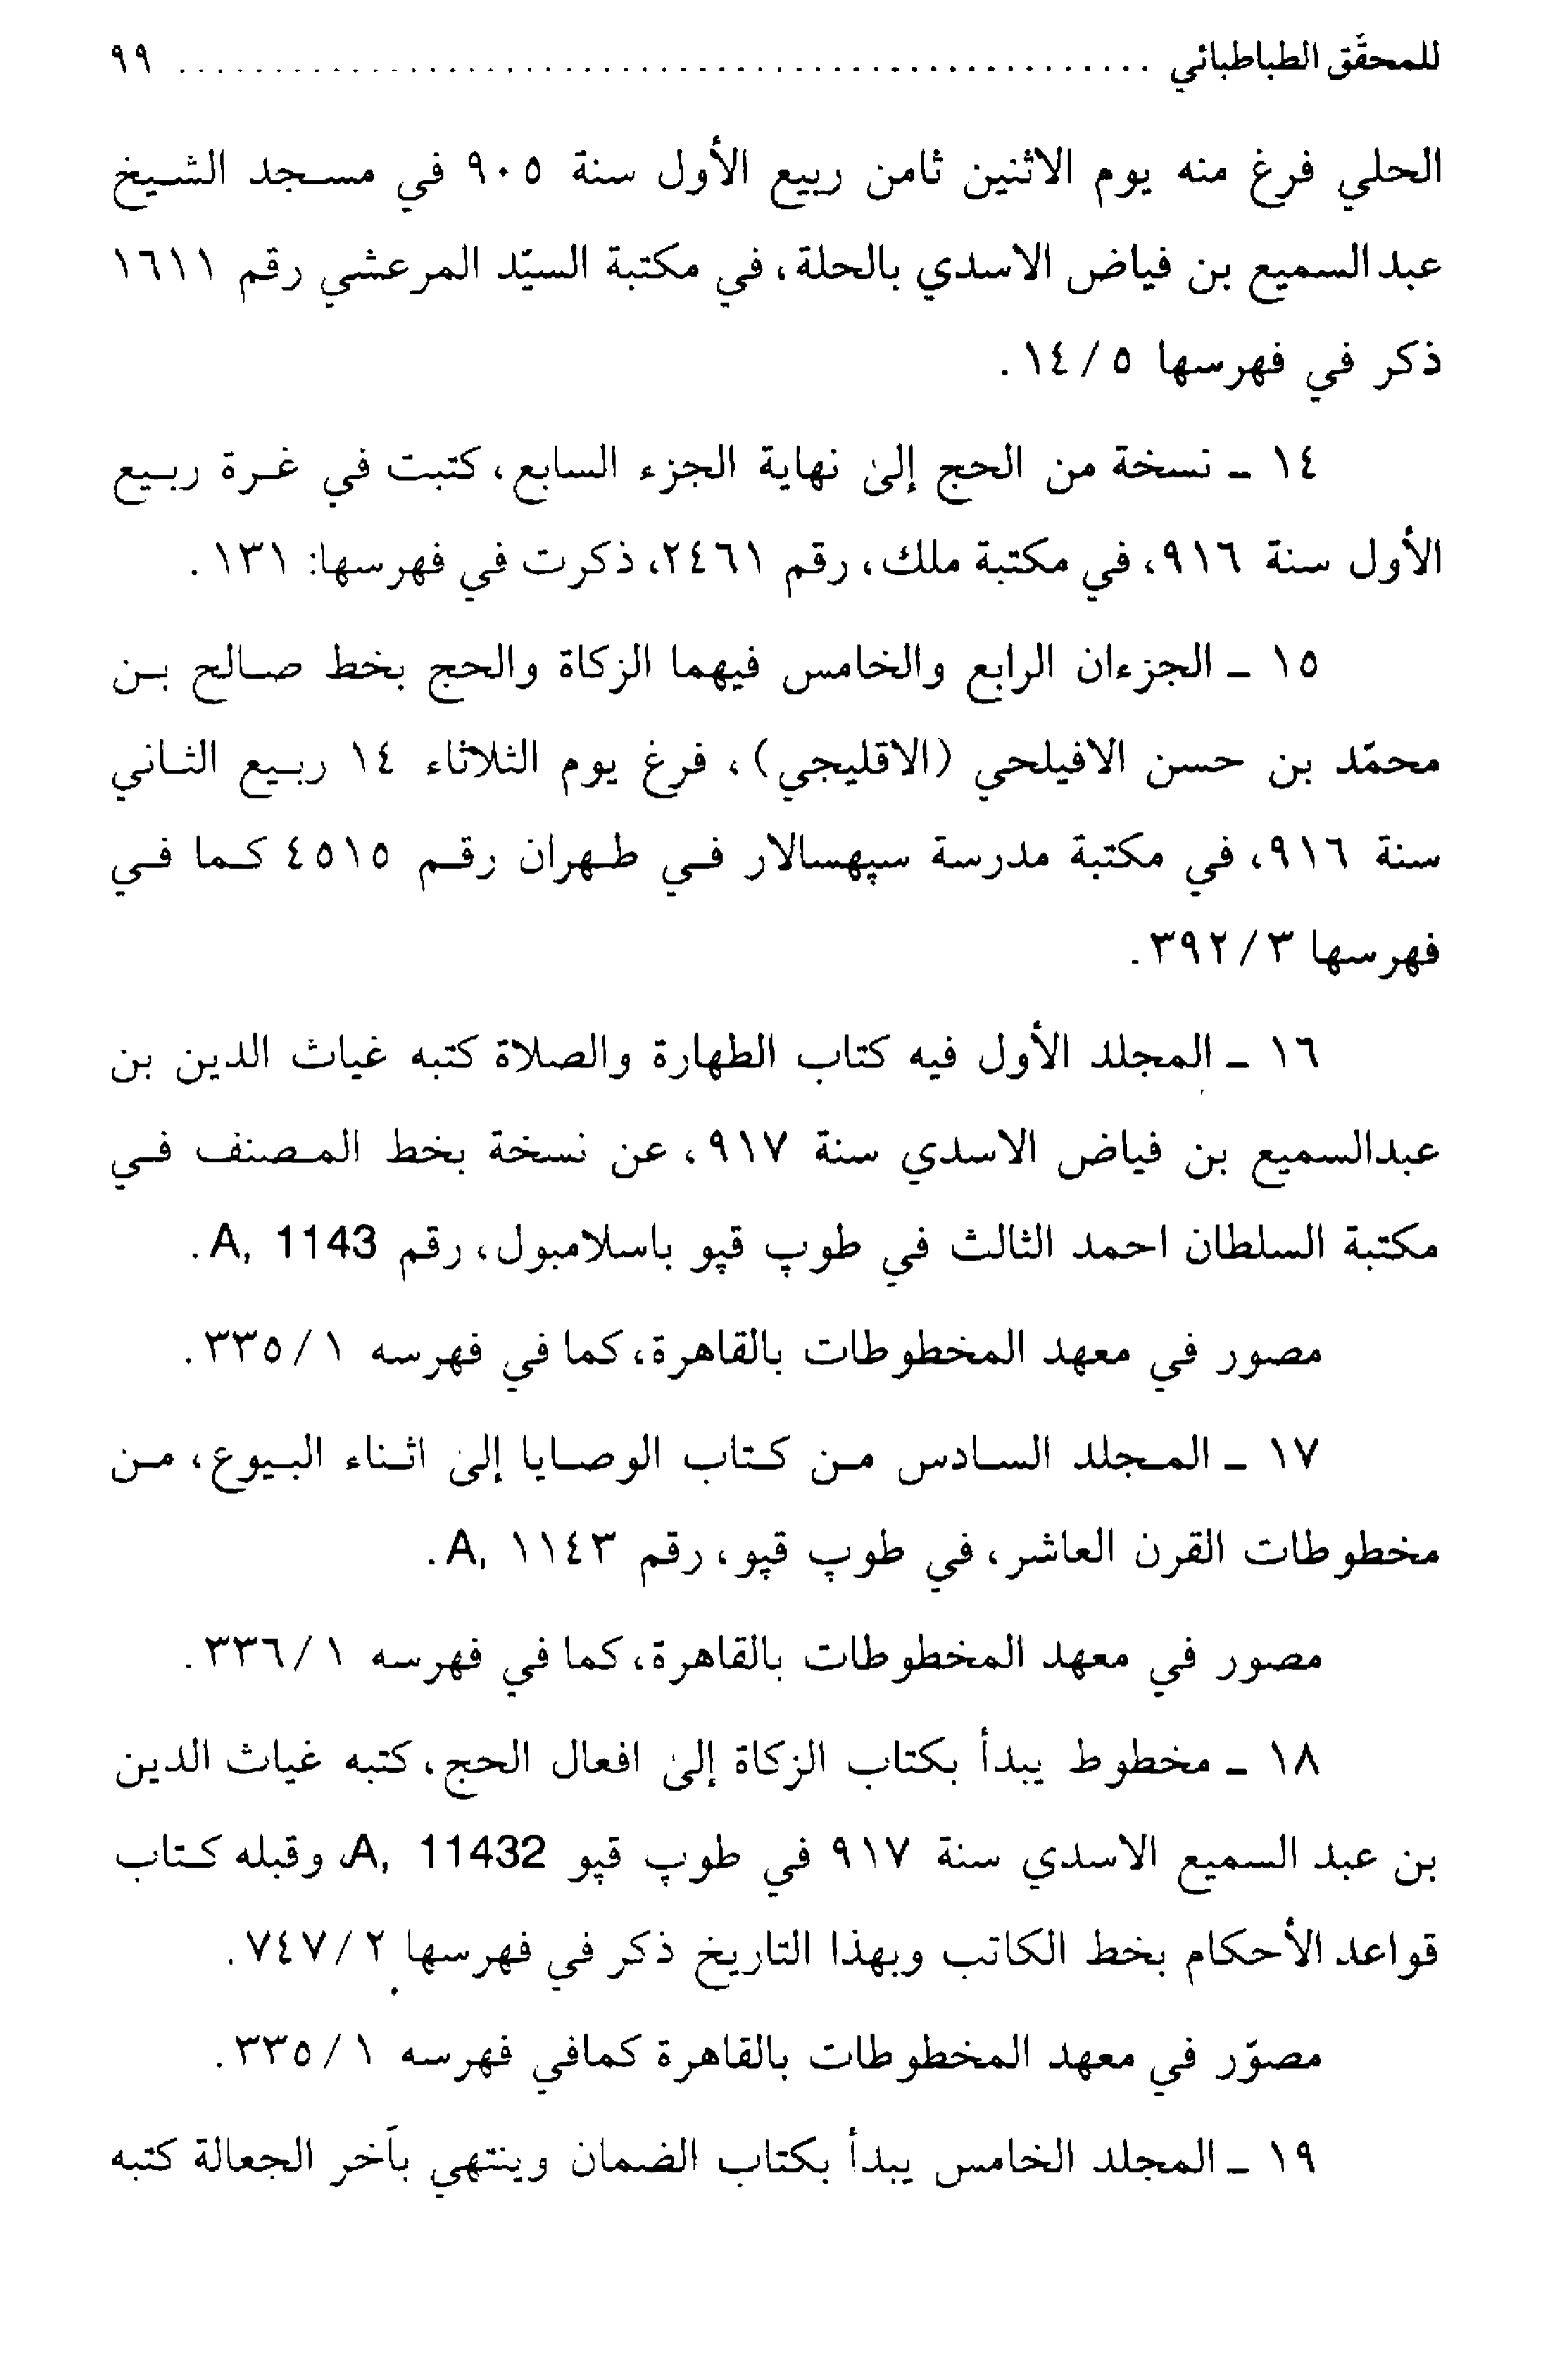 للمحقّق الطباطبائي ................................................... ٩٩
الحلي فرغ منه يوم الاثنين ثامن ربيع الأول سنة ٩٠٥ في مسجد الشيخ
عبدالسميع بن فياض الاسدي بالحلة، في مكتبة السيّد المرعشي رقم ١٦١١
ذكر في فهرسها ٥ / ١٤.
١٤ - نسخة من الحج إلىٰ نهاية الجزء السابع، كتبت في غرة ربيع
الأول سنة ٩١٦، في مكتبة ملك، رقم ٢٤٦١، ذكرت في فهرسها: ١٣١.
١٥ - الجزءان الرابع والخامس فيهما الزكاة والحج بخط صالح بن
محمّد بن حسن الافيلحي (الاقليجي)، فرغ يوم الثلاثاء ١٤ ربيع الثاني
سنة ٩١٦، في مكتبة مدرسة سپهسالار في طهران رقم ٤٥١٥ كما في
فهرسها ٣ / ٣٩٢.
١٦ - المجلد الأول فيه كتاب الطهارة والصلاة كتبه غياث الدين بن
عبدالسميع بن فياض الاسدي سنة ٩١٧، عن نسخة بخط المصنف في
مكتبة السلطان احمد الثالث في طوپ قپو باسلامبول، رقم A, 1143.
مصور في معهد المخطوطات بالقاهرة، كما في فهرسه ١ / ٣٣٥.
١٧ - المجلد السادس من كتاب الوصايا إلىٰ اثناء البيوع، من
مخطوطات القرن العاشر، في طوپ قپو، رقم A, ١١٤٣.
مصور في معهد المخطوطات بالقاهرة، كما في فهرسه ١ / ٣٣٦.
١٨ - مخطوط يبدأ بكتاب الزكاة إلىٰ افعال الحج، كتبه غياث الدين
بن عبد السميع الاسدي سنة ٩١٧ في طوپ قپو A, 11432، وقبله كتاب
قواعد الأحكام بخط الكاتب وبهذا التاريخ ذكر في فهرسها ٢ / ٧٤٧.
مصوّر في معهد المخطوطات بالقاهرة كمافي فهرسه ١ / ٣٣٥.
١٩ - المجلد الخامس يبدأ بكتاب الضمان وينتهي بآخر الجعالة كتبه